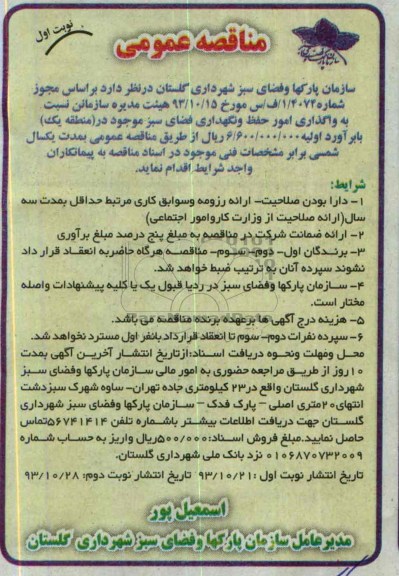 نوبت اول
مناقصه عمومی
سازمان پارکها وفضای سبز شهرداری گلستان درنظر دارد براساس مجوز
شماره۱/۴۰۷۲/ف/س مورخ ۹۳/۱۰/۱۵ هیئت مدیره سازمانن نسبت
به واگذاری امور حفظ ونگهداری فضای سبز موجود در(منطقه یک)
بابرآورد اولیه۶/۶۰۰/۰۰۰/۰۰۰ ریال از طریق مناقصه عمومی بمدت یکسال
شمسی برابر مشخصات فنی موجود در اسناد مناقصه به پیمانکاران
واجد شرایط اقدام نماید.
شرایط:
۱- دارا بودن صلاحیت- ارائه رزومه وسوابق کاری مرتبط حداقل بمدت سه
سال(ارائه صلاحیت از وزارت کاروامور اجتماعی)
۲- ارائه ضمانت شرکت در مناقصه به مبلغ پنج درصد مبلغ برآوری
۳- برنـدگان اول- دوم- سـوم- مناقصـه هرگاه حاضربه انعقـاد قرار داد
نشوند سپرده آنان به ترتیب ضبط خواهد شد.
۴- سـازمان پارکها وفضای سبز در ردیا قبول یک یا کلیه پیشنهادات واصله
مختار است.
۵- هزینه درج آگهی ها برعهده برنده مناقصه می باشد.
۶- سپرده نفرات دوم- سوم تا انعقاد قرارداد بانفر اول مسترد نخواهد شد.
محـل ومهلت ونحـوه دریافت اسـناد:ازتاریخ انتشـار آخریـن آگهی بمدت
۱۰روز از طریـق مراجعه حضوری به امور مالی سازمان پارکها وفضای سـبز
شهرداری گلستان واقع در۲۳ کیلومتری جاده تهران- ساوه شهرک سبزدشت
انتهای۲۰متری اصلی – پارک فدک – سـازمان پارکها وفضای سبز شهرداری
گلسـتان جهت دریافت اطلاعات بیشـتر باشـماره تلفن ۵۶۷۴۱۴۱۴تماس
حاصل نمایید.مبلغ فروش اسـناد:۵۰۰/۰۰۰ریال واریز به حساب شـماره
۰۱۰۶۸۷۰۷۳۲۰۰۹ نزد بانک ملی شهرداری گلستان.
تاریخ انتشار نوبت اول :۹۳/۱۰/۲۱ تاریخ انتشار نوبت دوم: ۹۳/۱۰/۲۸
اسمعیل پور
مدیرعامل سازمان پارکها وفضای سبز شهرداری گلستان